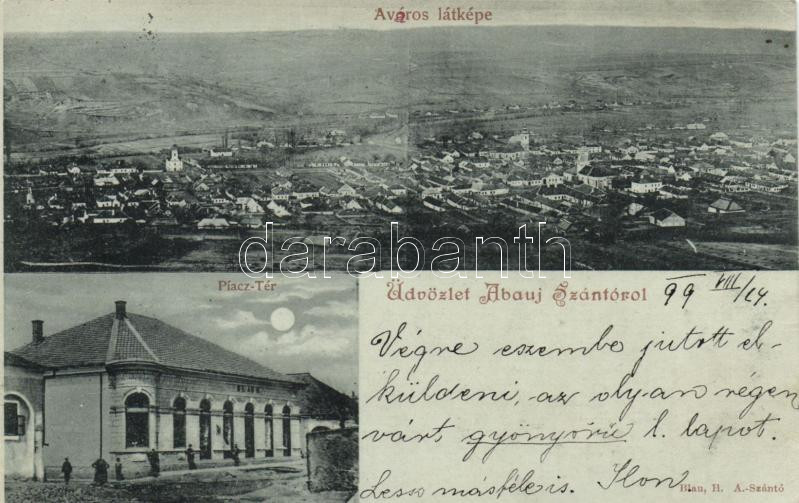 A város látképe
darabanth
Piacz-Tér
Üdvözlet Abauj Szántóról
99 VIII/14
Végre eszembe jutott el-
küldeni, az olyan régen
várt gyönyörű l. lapot.
Lessz másféle is. Ilon
Blau, H. A.-Szántó